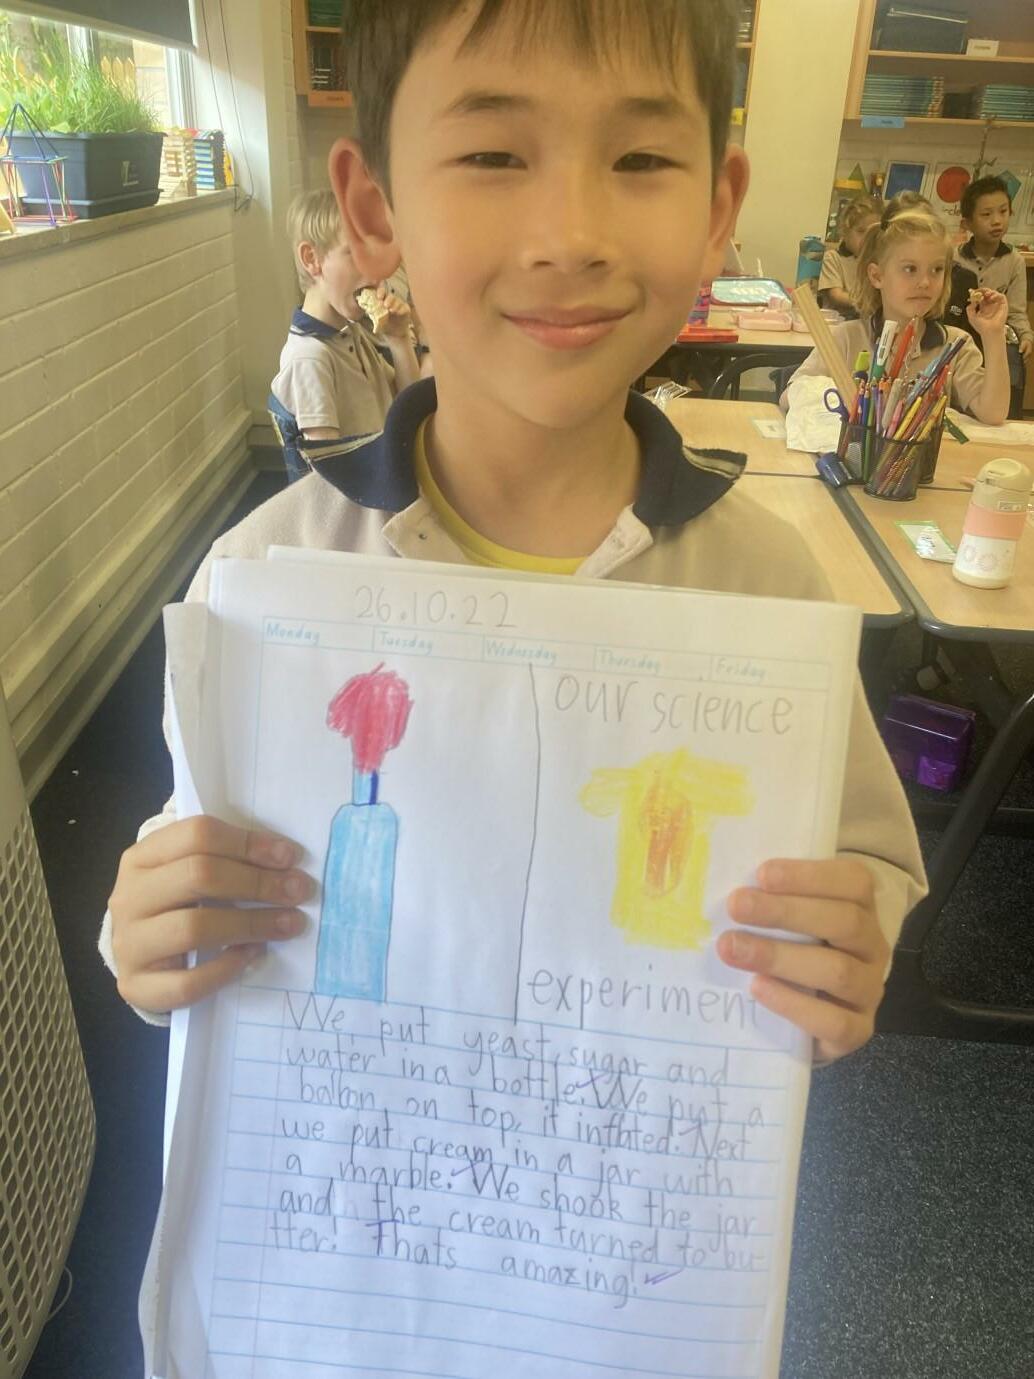 26.10.22
Monday Tuesday Wednesday Thursday Friday
our science
experiment
We put yeast, sugar and
water in a bottle. We put a
balloon on top, it inflated. Next
we put cream in a jar with
a marble. We shook the jar
and the cream turned to bu-
tter! Thats amazing!